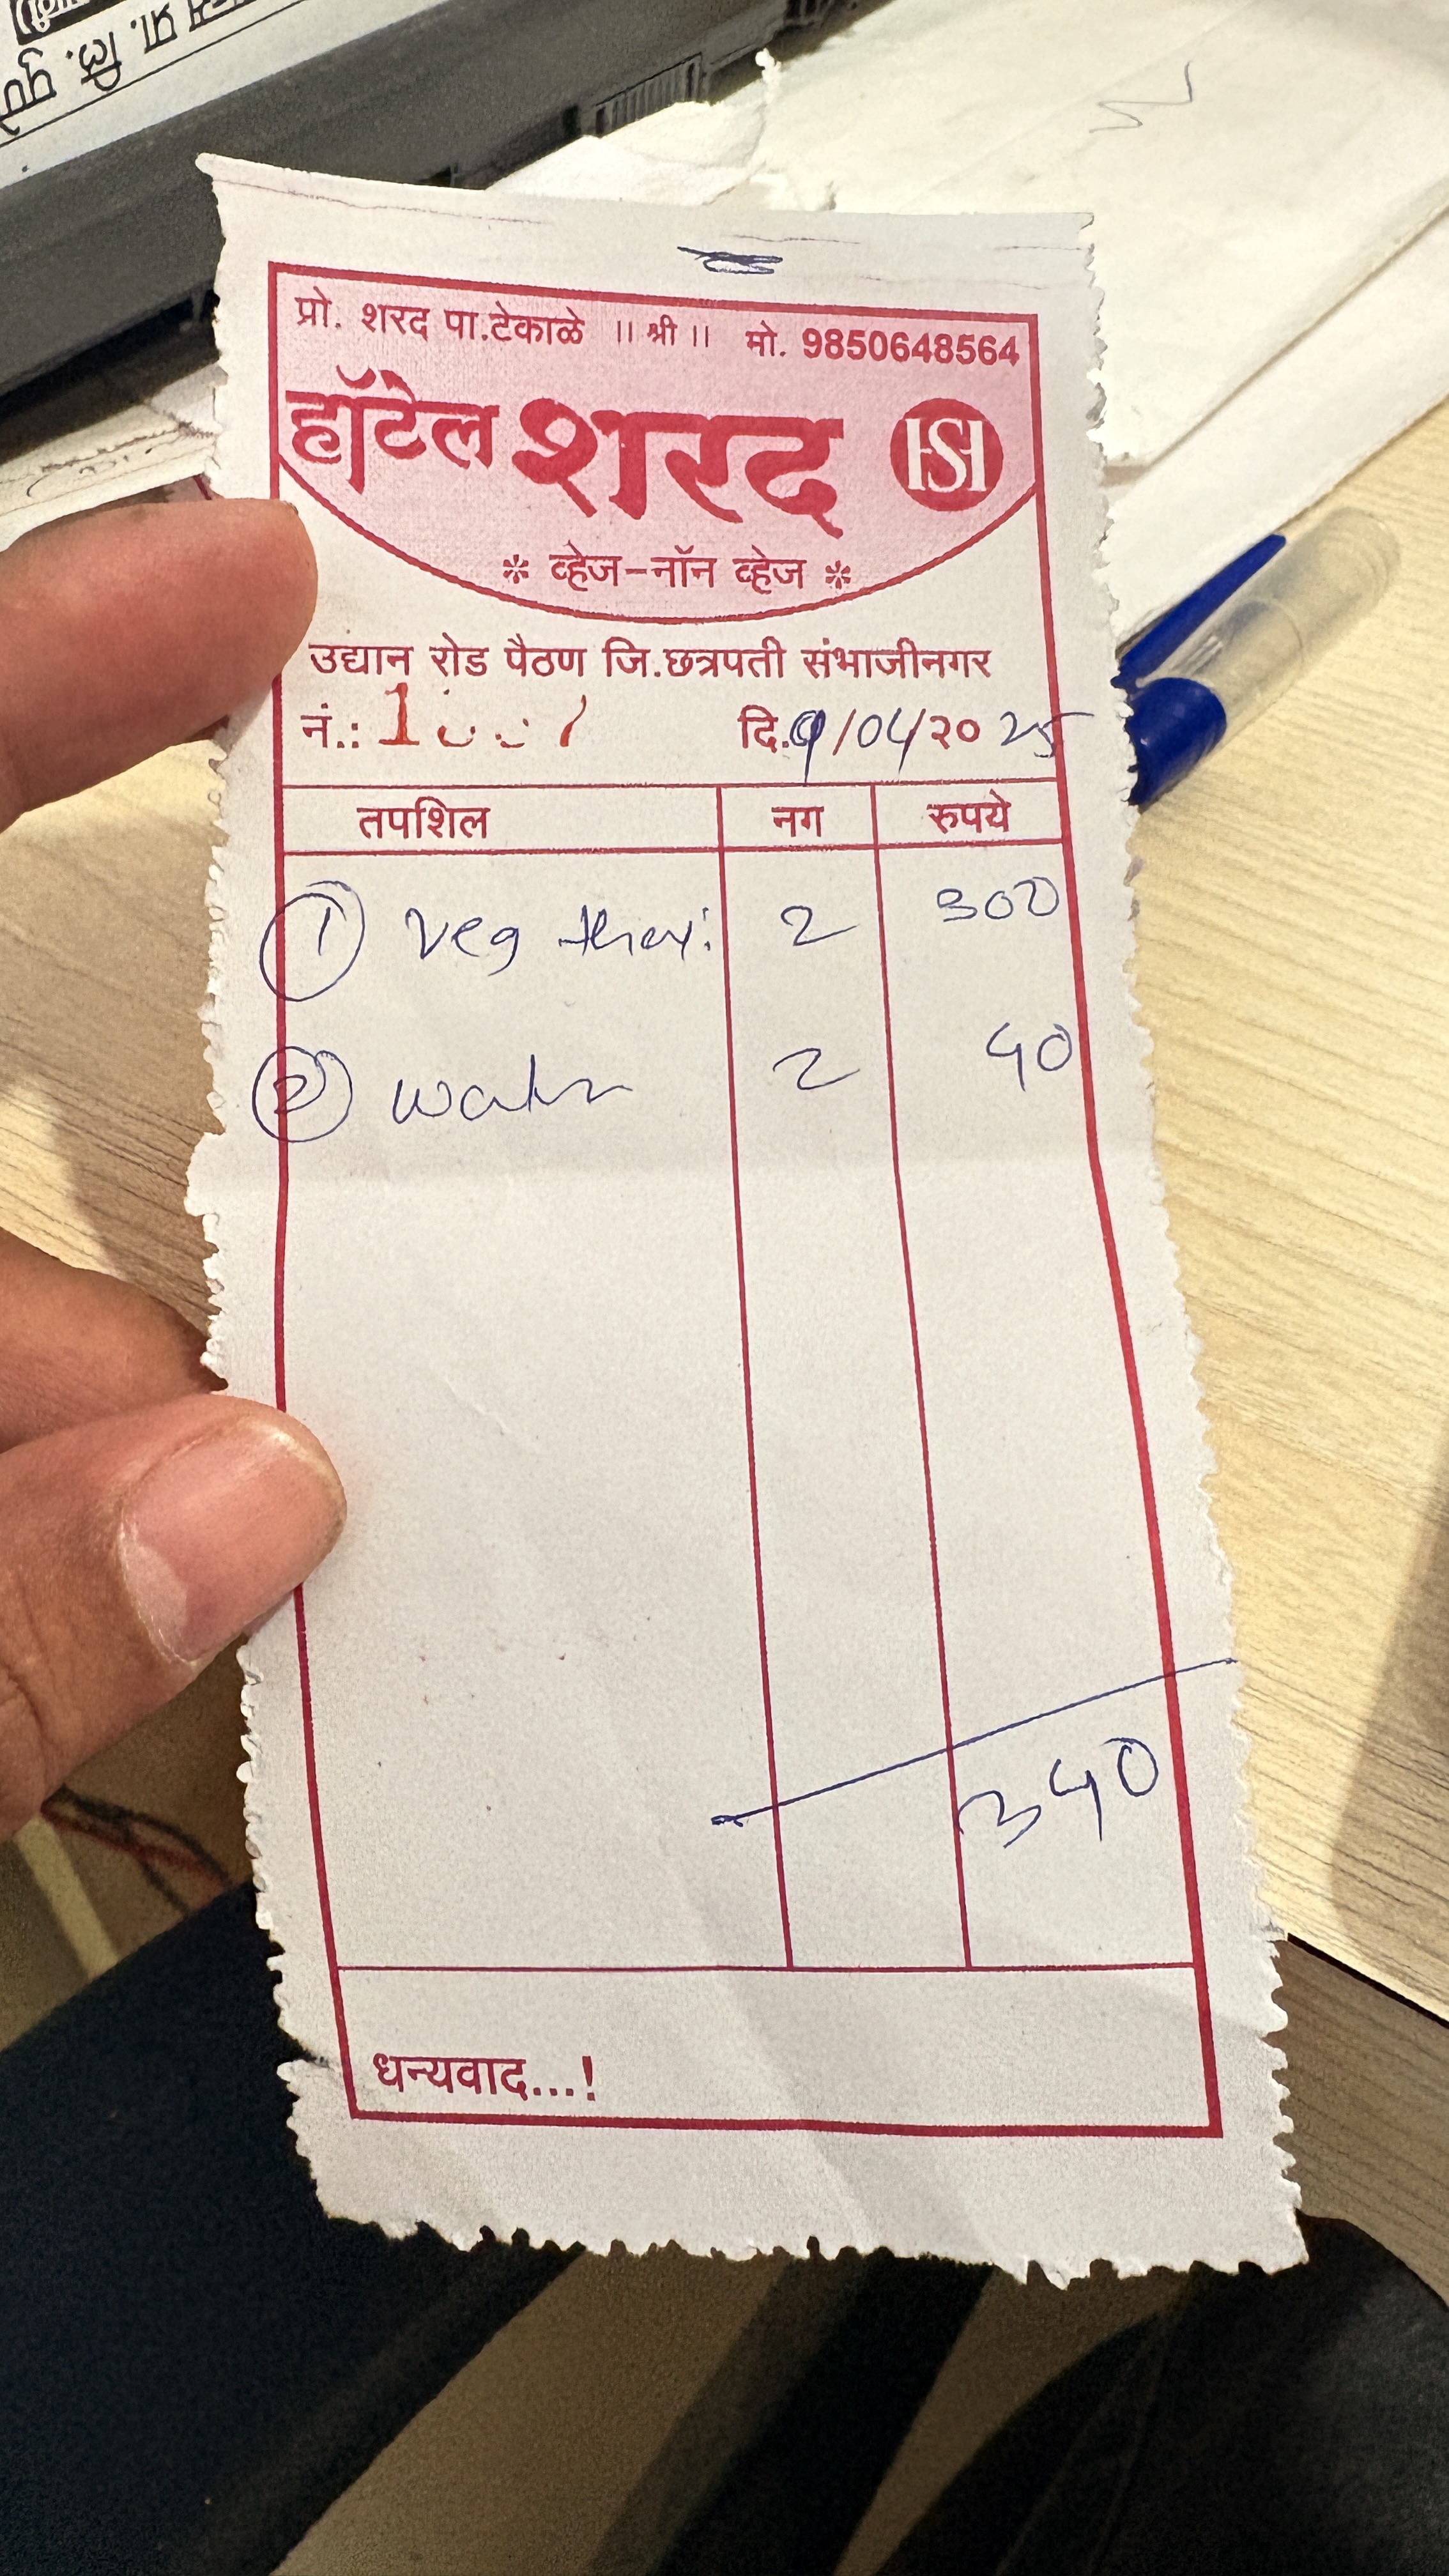 प्रा. लि. पुणे
प्रो. शरद पा.टेकाळे ॥ श्री ॥ मो. 9850648564
हॉटेल शरद HSH
* व्हेज-नॉन व्हेज *
उद्यान रोड पैठण जि.छत्रपती संभाजीनगर
नं.: दि. 9/04/२० 25
तपशिल नग रुपये
1 Veg thali 2 300
2 water 2 40
340
धन्यवाद...!